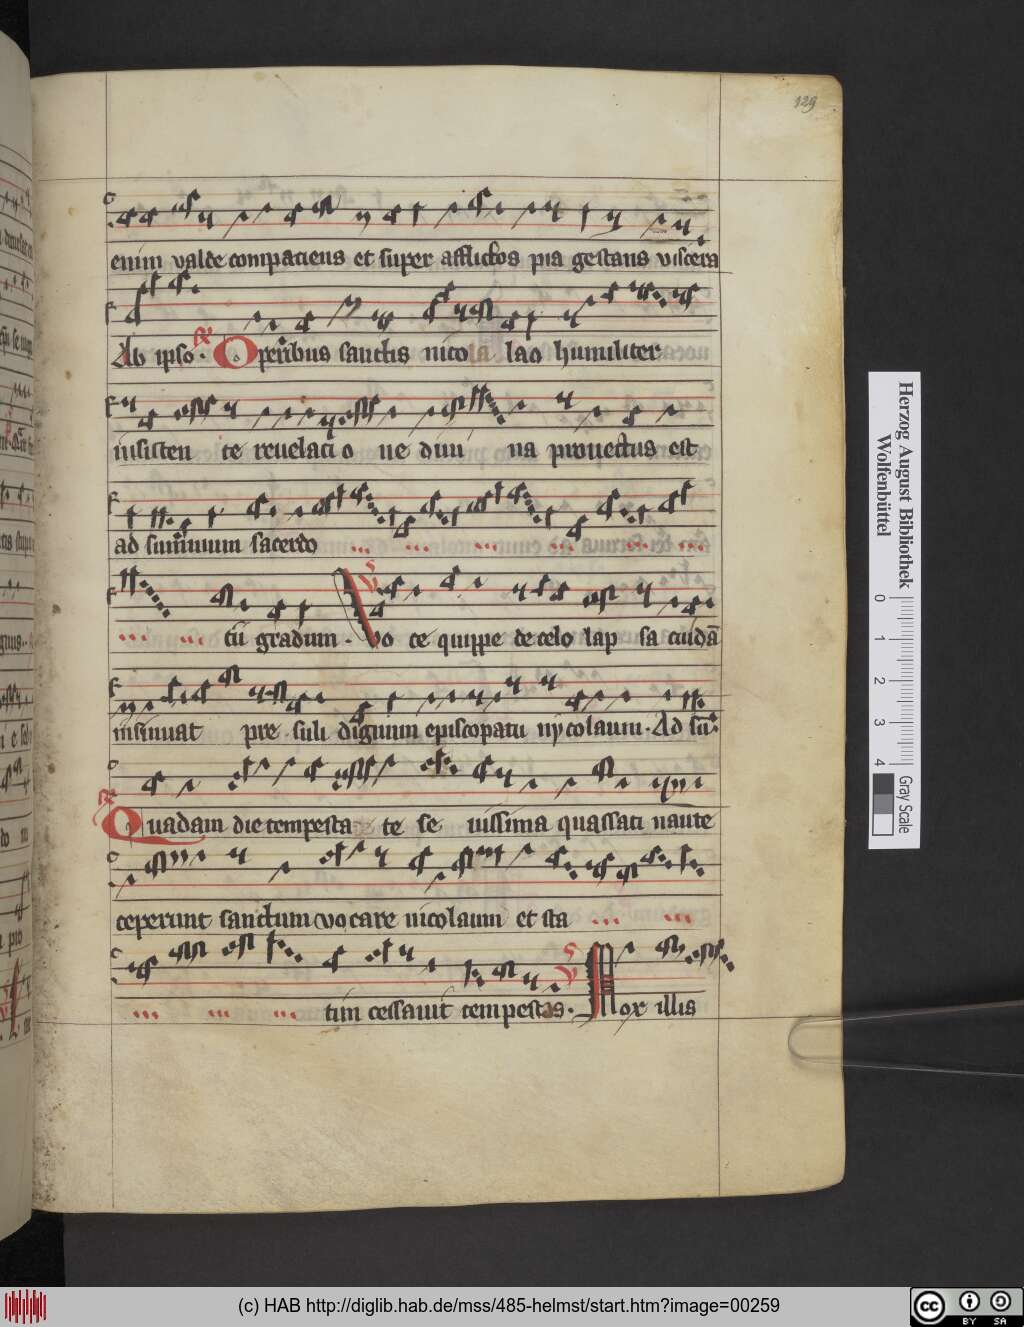 129
enim valde compatiens et super afflictos pia gestans viscera
Ab ipso. R Operibus sanctis nicola lao humiliter
insisten te reuelacio ne diui na prouectus est
ad summum sacerdo
cū gradum. V Vo ce quippe de celo lap sa cuidā
insinuat pre suli dignum episcopatu nycolaum. Ad sū
R Quadam die tempesta te se uissima quassati naute
ceperunt sanctum vocare nicolaum et sta
tim cessauit tempestas. V Mox illis
Herzog August Bibliothek
Wolfenbüttel
0 1 2 3 4
Gray Scale
(c) HAB http://diglib.hab.de/mss/485-helmst/start.htm?image=00259
cc BY SA